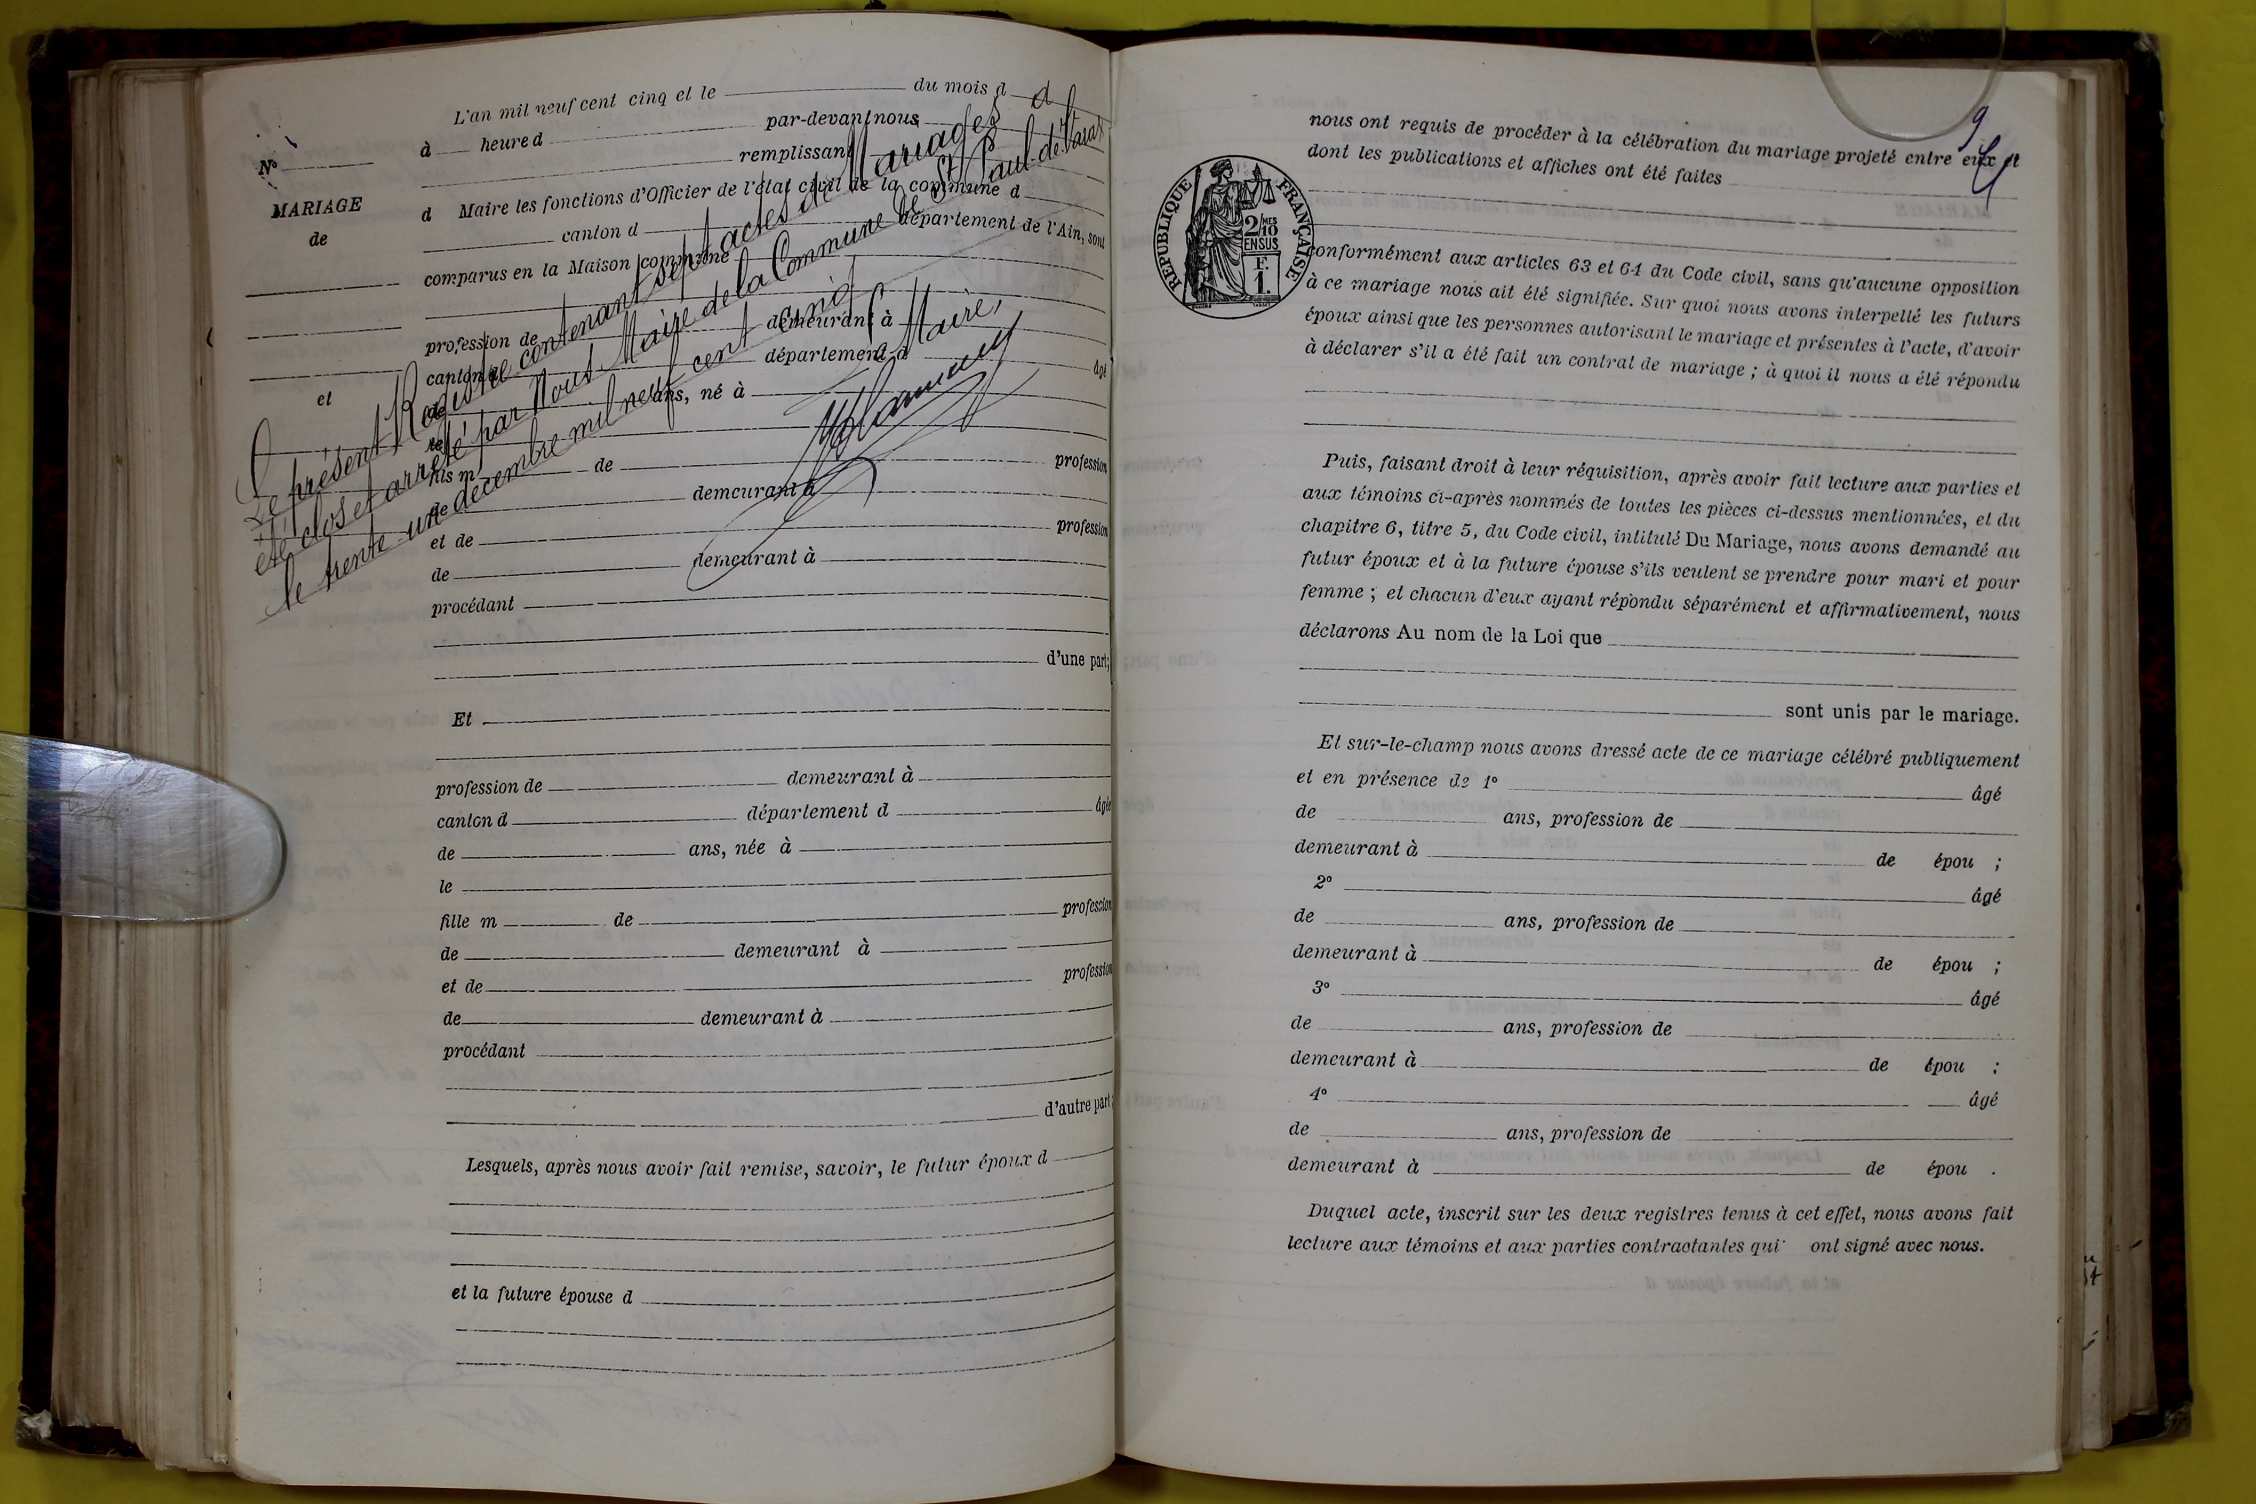 L'an mil neuf cent cinq et le du mois d
à heure d par-devant nous
remplissant
d Maire les fonctions d'Officier de l'état civil de la commune d
canton d département de l'Ain, sont
comparus en la Maison commune
profession de demeurant à
canton d département d âgé
de ans, né à
le
fils m de profession
de demeurant à
et de profession
de demeurant à
procédant
d'une part;
Et
profession de demeurant à
canton d département d âgée
de ans, née à
le
fille m de profession
de demeurant à
et de profession
de demeurant à
procédant
d'autre part;
Lesquels, après nous avoir fait remise, savoir, le futur époux d
et la future épouse d
No
MARIAGE
de
et
Le présent Registre contenant sept actes de Mariages a
été clos et arrêté par Nous Maire de la Commune de St Paul-de-Varax
le trente-une décembre mil neuf cent cinq
Le Maire,
9
nous ont requis de procéder à la célébration du mariage projeté entre eux et
dont les publications et affiches ont été faites
RÉPUBLIQUE FRANÇAISE
2/10 MES
EN SUS
F.
1.
conformément aux articles 63 et 64 du Code civil, sans qu'aucune opposition
à ce mariage nous ait été signifiée. Sur quoi nous avons interpellé les futurs
époux ainsi que les personnes autorisant le mariage et présentes à l'acte, d'avoir
à déclarer s'il a été fait un contrat de mariage ; à quoi il nous a été répondu
Puis, faisant droit à leur réquisition, après avoir fait lecture aux parties et
aux témoins ci-après nommés de toutes les pièces ci-dessus mentionnées, et du
chapitre 6, titre 5, du Code civil, intitulé Du Mariage, nous avons demandé au
futur époux et à la future épouse s'ils veulent se prendre pour mari et pour
femme ; et chacun d'eux ayant répondu séparément et affirmativement, nous
déclarons Au nom de la Loi que
sont unis par le mariage.
Et sur-le-champ nous avons dressé acte de ce mariage célébré publiquement
et en présence de 1º âgé
de ans, profession de
demeurant à de épou ;
2º âgé
de ans, profession de
demeurant à de épou ;
3º âgé
de ans, profession de
demeurant à de épou ;
4º âgé
de ans, profession de
demeurant à de épou .
Duquel acte, inscrit sur les deux registres tenus à cet effet, nous avons fait
lecture aux témoins et aux parties contractantes qui ont signé avec nous.